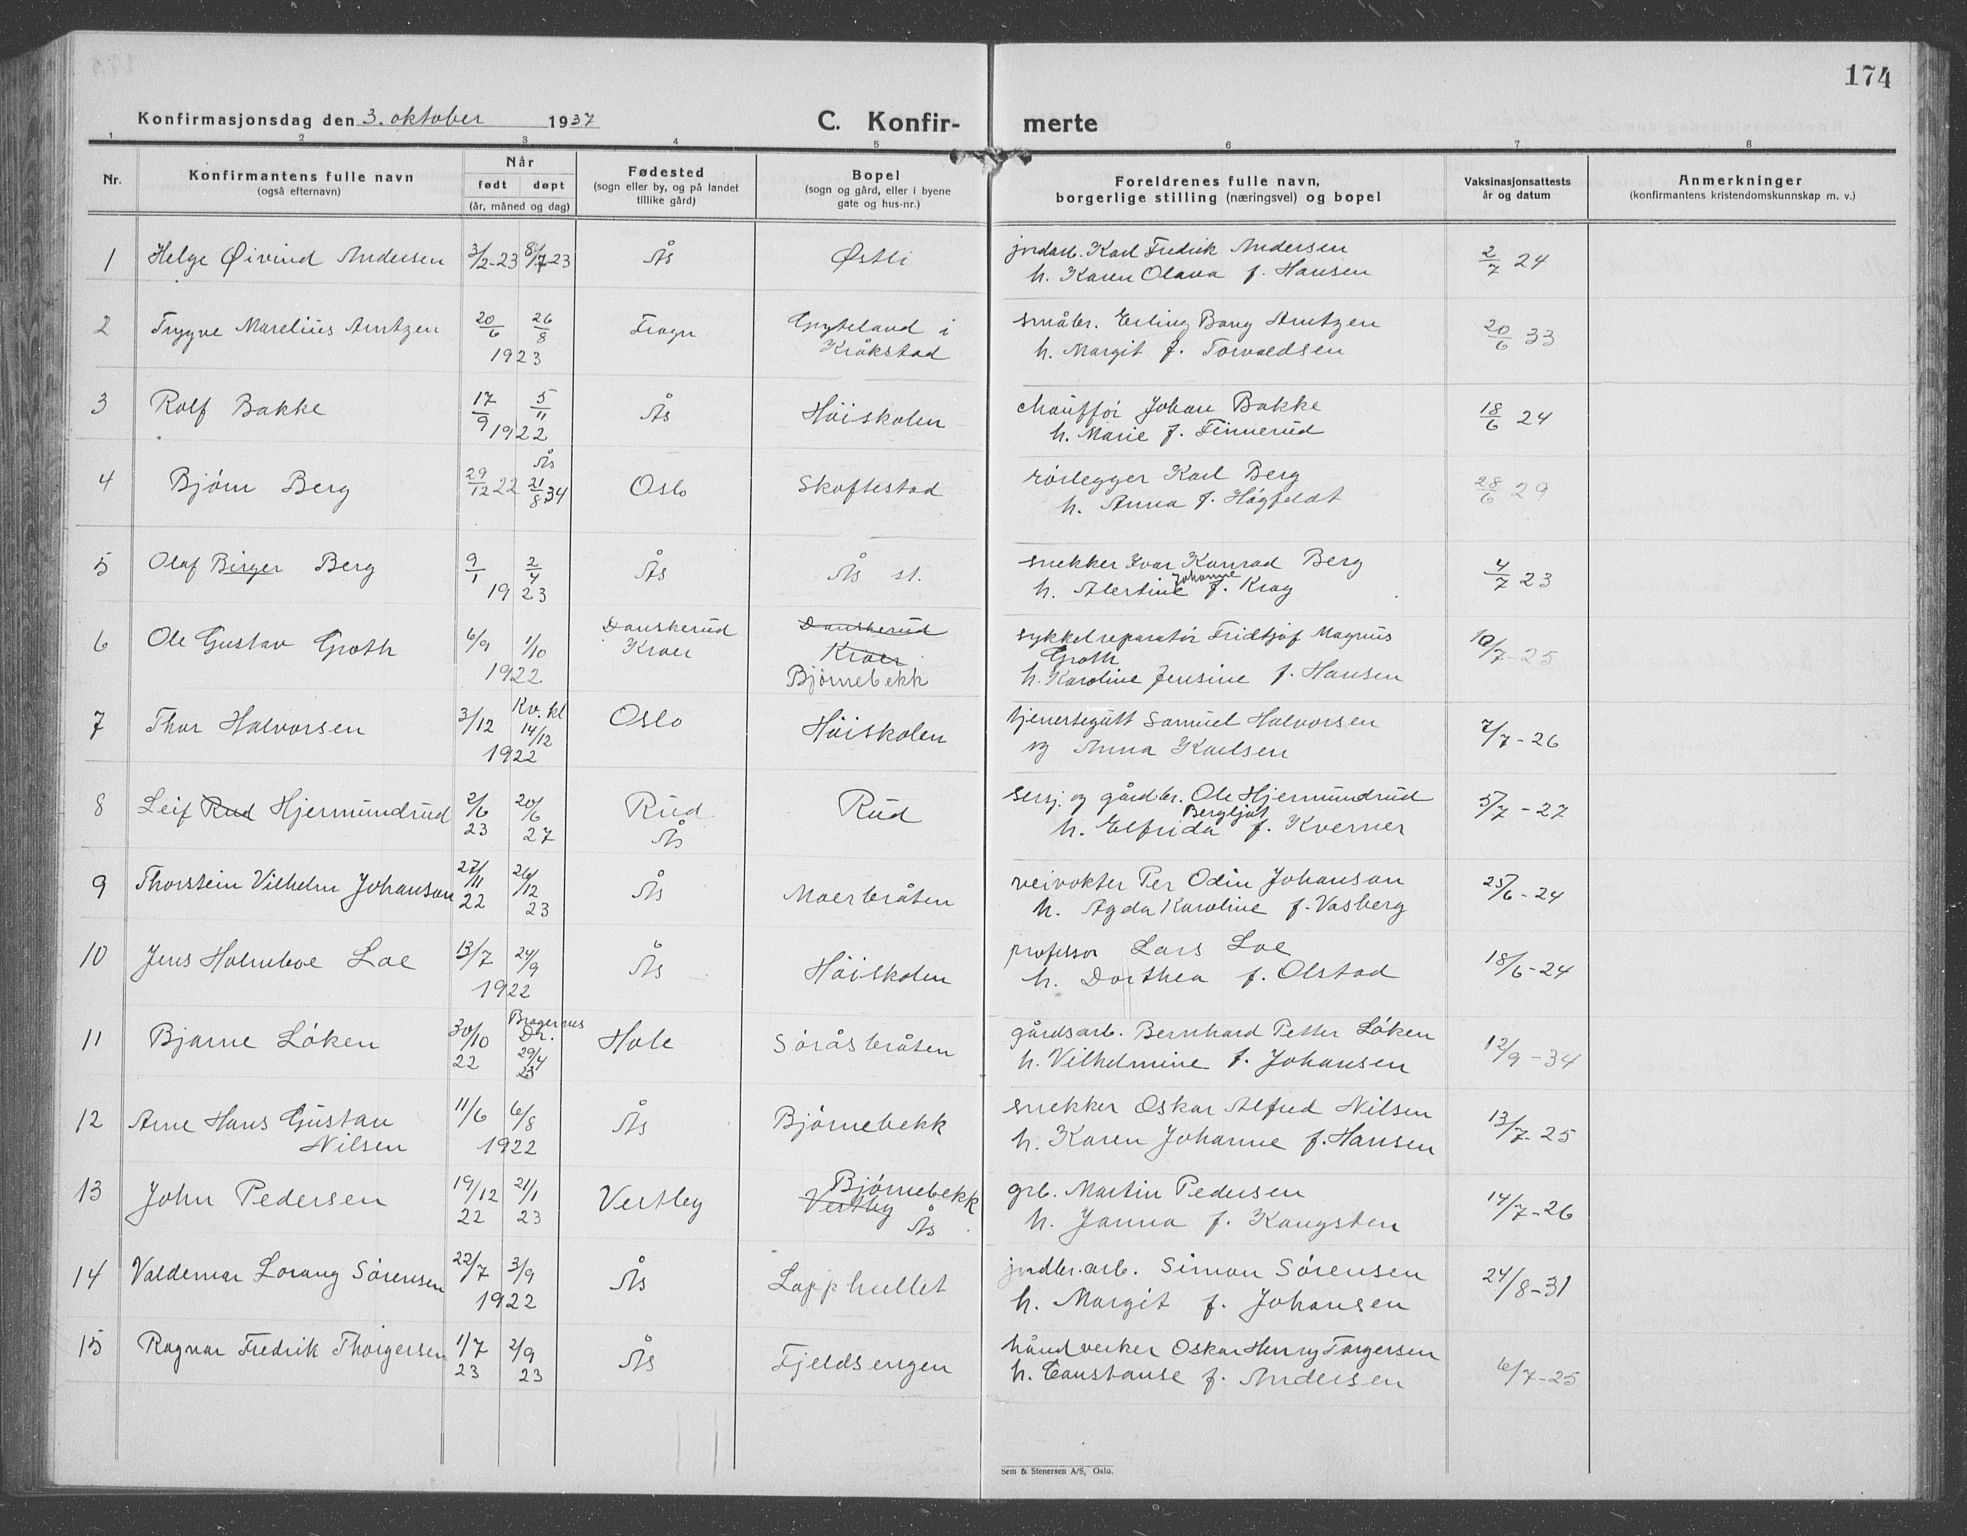 174
Konfirmasjonsdag den 3. oktober 1937 C. Konfir- merte
1 2 3 4 5 6 7 8
Nr. Konfirmantens fulle navn (også efternavn) Når født døpt (år, måned og dag) Fødested (sogn eller by, og på landet tillike gård) Bopel (sogn og gård, eller i byene gate og hus-nr.) Foreldrenes fulle navn, borgerlige stilling (næringsvei) og bopel Vaksinasjonsattests år og datum Anmerkninger (konfirmantens kristendomskunnskap m. v.)
1 Helge Øivind Andersen 3/2-23 8/7-23 Ås Østli jordarb. Karl Fredrik Andersen 2/7 24
h. Karen Olava f. Hansen
2 Trygve Marelius Arntzen 20/6 26/8 Frogn Gryteland i småbr. Erling Bang Arntzen 20/6 33
1923 Kråkstad h. Margit f. Torvaldsen
3 Rolf Bakke 17/9 5/11 Ås Høiskolen chauffør Johan Bakke 18/6 24
1922 h. Marie f. Finnerud
Ås
4 Bjørn Berg 29/12 22 21/8 34 Oslo Skoftestad rørlegger Karl Berg 28/6 29
h. Anna f. Høgfeldt
5 Olaf Birger Berg 9/1 2/4 Ås Ås st. snekker Ivar Konrad Berg 4/7 23
1923 h. Alertine Johanne f. Krog
6 Ole Gustav Groth 6/9 1/10 Danskerud Danskerud sykkelreparatør Fridtjof Magnus 10/7-25
Kroer Kroer Groth
1922 Bjørnebekk h. Karoline Jensine f. Hansen
7 Thor Halvorsen 3/12 Kv. kl 14/12 Oslo Høiskolen tjenestegutt Samuel Halvorsen 7/7-26
1922 og Anna Karlsen
8 Leif Rud Hjermundrud 2/6 20/6 Rud Rud sersj. og gårdbr. Ole Hjermundrud 5/7-27
23 27 Ås h. Elfrida Bergljot f. Kverner
9 Thorstein Vilhelm Johanson 27/11 26/12 Ås Moerbråten veivokter Per Odin Johanson 25/6-24
22 23 h. Agda Karoline f. Vasberg
10 Jens Holmboe Loe 13/7 24/9 Ås Høiskolen professor Lars Loe 18/6-24
1922 h. Dorthea f. Olstad
11 Bjarne Løken 30/10 Bragernes Dr. Hole Søråsbråten gårdsarb. Bernhard Petter Løken 12/9-34
22 29/4 23 h. Vilhelmine f. Johansen
12 Arne Hans Gustav 11/6 6/8 Ås Bjørnebekk snekker Oskar Alfred Nilsen 13/7-25
Nilsen 1922 h. Karen Johanne f. Hansen
13 John Pedersen 19/12 21/1 Vestby Bjørnebekk grb. Martin Pedersen 14/7-26
22 23 Vestby Ås h. Janna f. Kongsten
14 Valdemar Lorang Sørensen 22/7 3/9 Ås Lapphullet jordbr.arb. Simon Sørensen 24/8-31
1922 h. Margit f. Johansen
15 Ragnar Fredrik Thorgersen 1/7 2/9 Ås Fjeldsengen håndverker Oskar Henry Torgersen 6/7-25
23 23 h. Constanse f. Andersen
Sem & Stenersen A/S, Oslo.